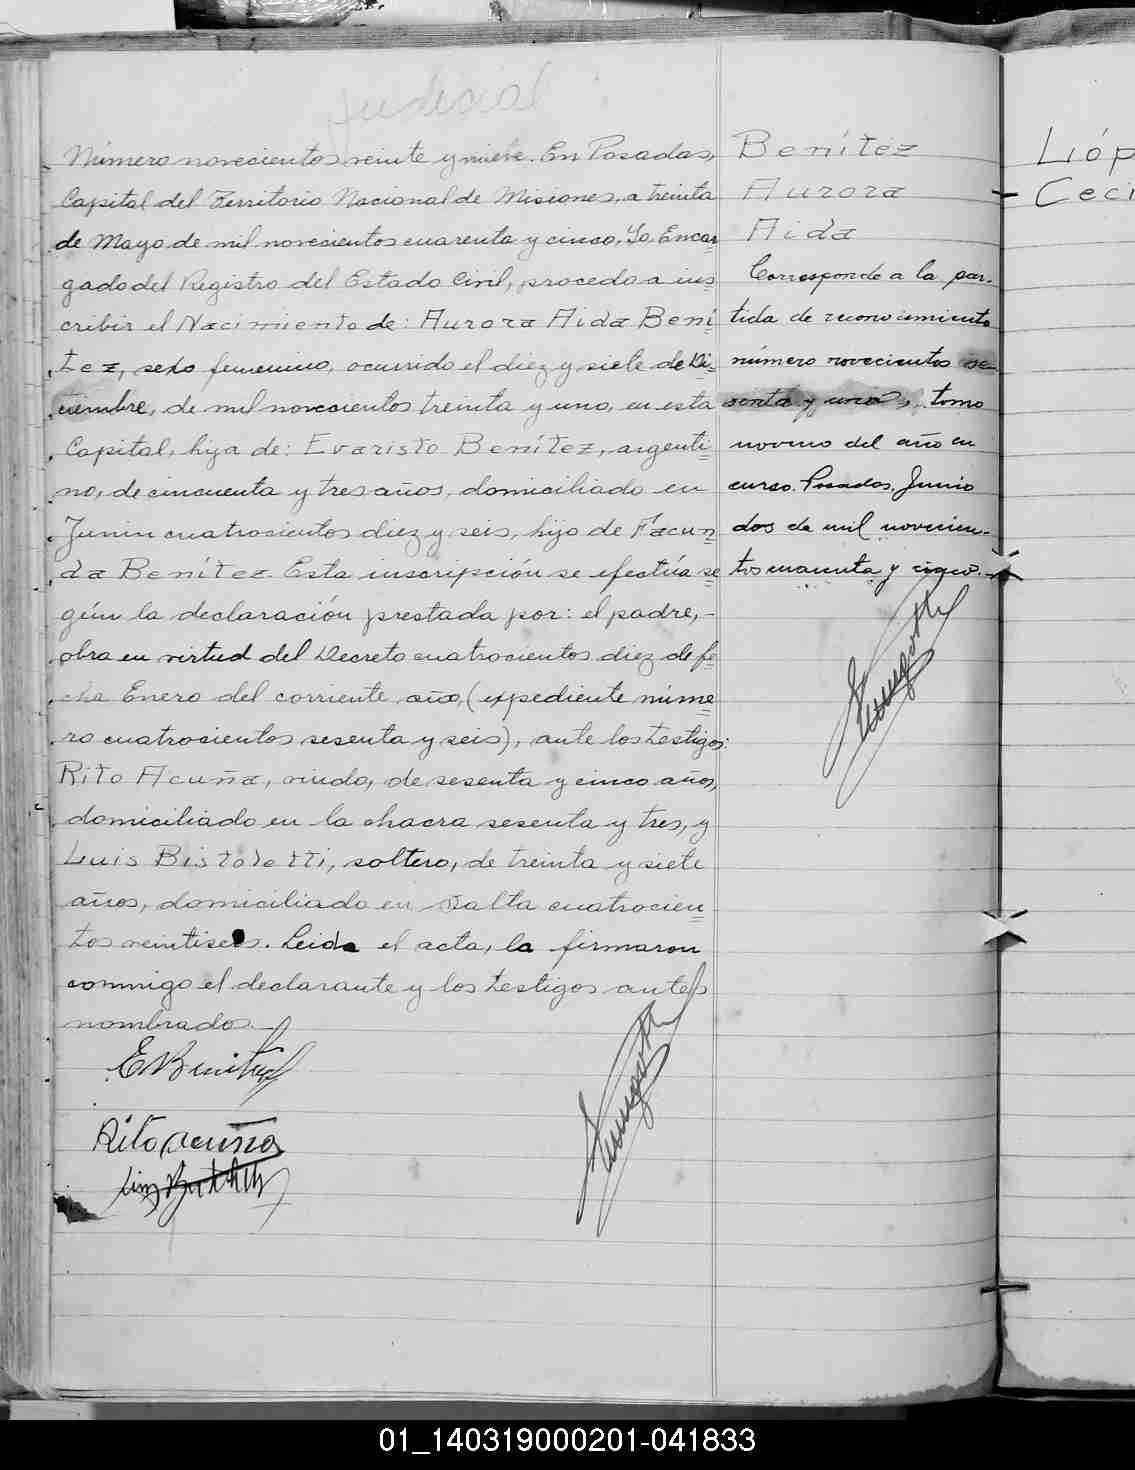 Judicial
Número novecientos veinte y nueve. En Posadas,
Capital del Territorio Nacional de Misiones, a treinta
de Mayo de mil novecientos cuarenta y cinco, Yo, Encar
gado del Registro del Estado Civil, procedo a ins
cribir el Nacimiento de: Aurora Aida Bení
tez, sexo femenino, ocurrido el diez y siete de Di
ciembre, de mil novecientos treinta y uno, en esta
Capital, hija de: Evaristo Benítez, argenti
no, de cincuenta y tres años, domiciliado en
Junin cuatrocientos diez y seis, hijo de Facun
da Benítez. Esta inscripción se efectúa se
gún la declaración prestada por: el padre, -
obra en virtud del Decreto cuatrocientos diez de fe
cha Enero del corriente año, (expediente núme
ro cuatrocientos sesenta y seis), ante los testigos:
Rito Acuña, viudo, de sesenta y cinco años,
domiciliado en la chacra sesenta y tres, y
Luis Bistoletti, soltero, de treinta y siete
años, domiciliado en Salta cuatrocien
tos veintiseis. Leida el acta, la firmaron
conmigo el declarante y los testigos antes
nombrados.
E Benitez
Rito Acuña
Benítez
Aurora
Aida
Corresponde a la par-
tida de reconocimiento
número novecientos se
senta y uno, tomo
noveno del año en
curso. Posadas, Junio
dos de mil novecien-
tos cuarenta y cinco.-
Lióp
Ceci
01_140319000201-041833